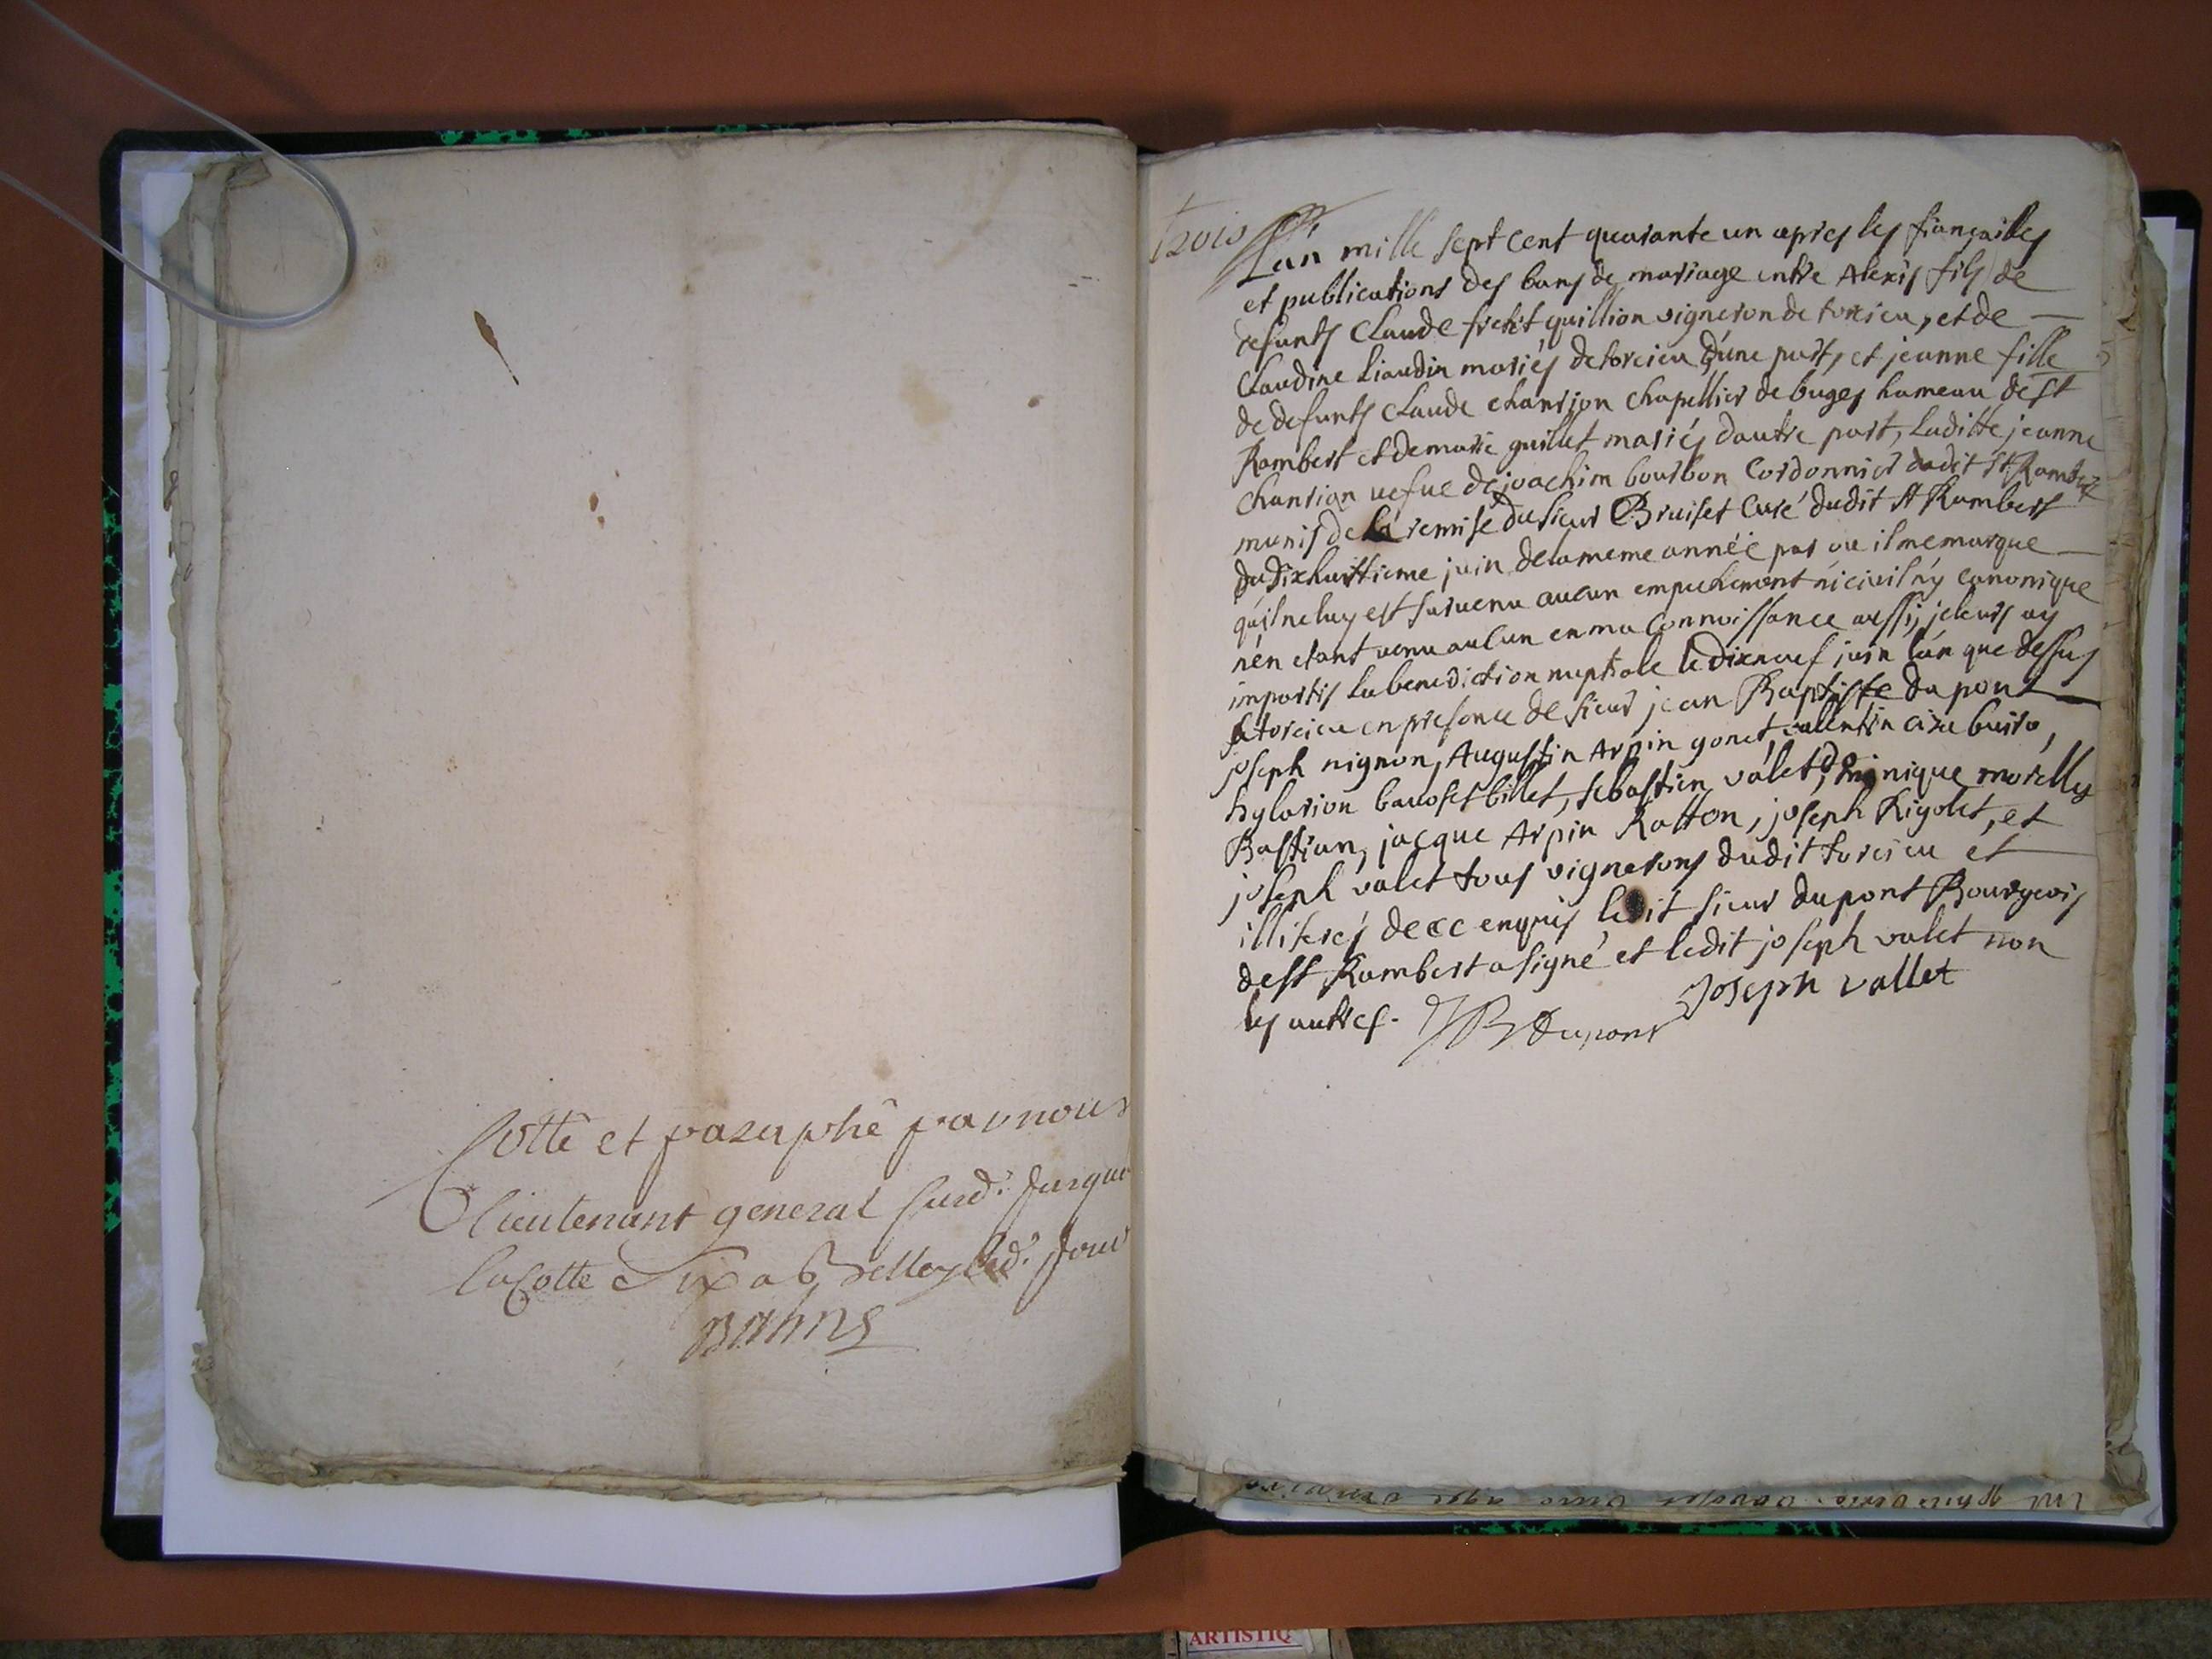 Cotté et paraphé par nous
lieutenant general susd. jusque
la cotte Six a Belley led. jour
trois
L'an mille sept cent quarante un apres les fiançailles
et publications des bans de mariage entre Alexis fils de
defunts Claude fretit quillion vigneron de torcieu, et de
Claudine Liaudin mariés de torcieu d'une part, et jeanne fille
de defunts Claude chanrion chapellier de buges hameau de st
Rambert et de marie guillet mariés dautre part, laditte jeanne
chanrion vefue de joachim bourbon Cordonnier dudit st Rambert
munis de la remise du sieur Bruiset Curé dudit st Rambert
du dixhuittieme juin de la meme année par ou il me marque
qu'il ne luy est survenu aucun empechement ni civil ny canonique
n'en etant venu aucun en ma connoissance aussi, je leurs ay
impartis la benediction nuptiale le dixneuf juin l'an que dessus
a torcieu en presence de sieur jean Baptiste dupont
joseph nignon, Augustin Arpin gonet, valentin
hylarion bauoset billet, sebastien valet, dominique morelly
Bastian, jacque Arpin Ratton, joseph Rigolet, et
joseph valet tous vignerons dudit torcieu et
illiterés de ce enquis ledit sieur dupont Bourgeois
de st Rambert a signé et ledit joseph valet non
les autres. JB Dupont Joseph vallet
ARTISTIQ